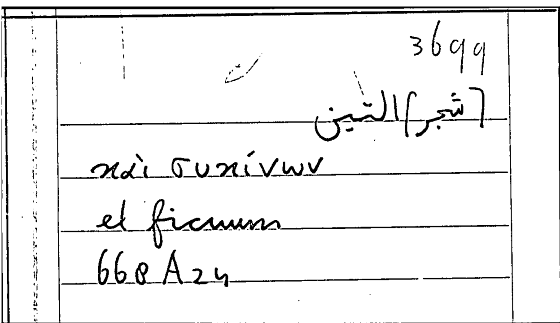 3699
[شجر] التين
καὶ συκίνων
et ficuum
668 A 24